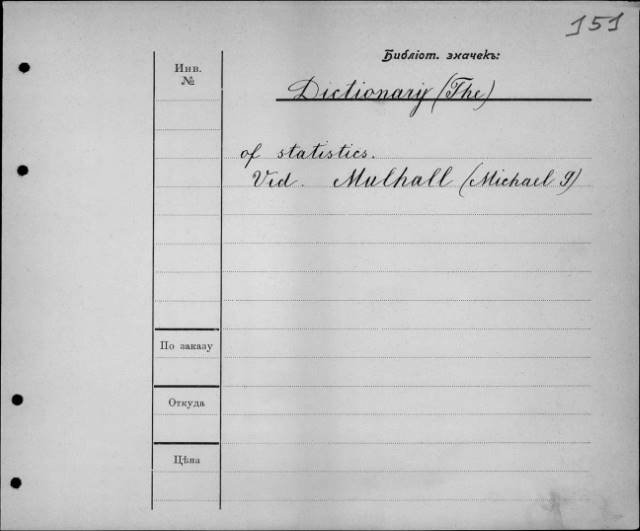 151
Библіот. значекъ:
Инв.
№
Dictionary (The)
of statistics.
Vid. Mulhall (Michael G)
По заказу
Откуда
Цѣна